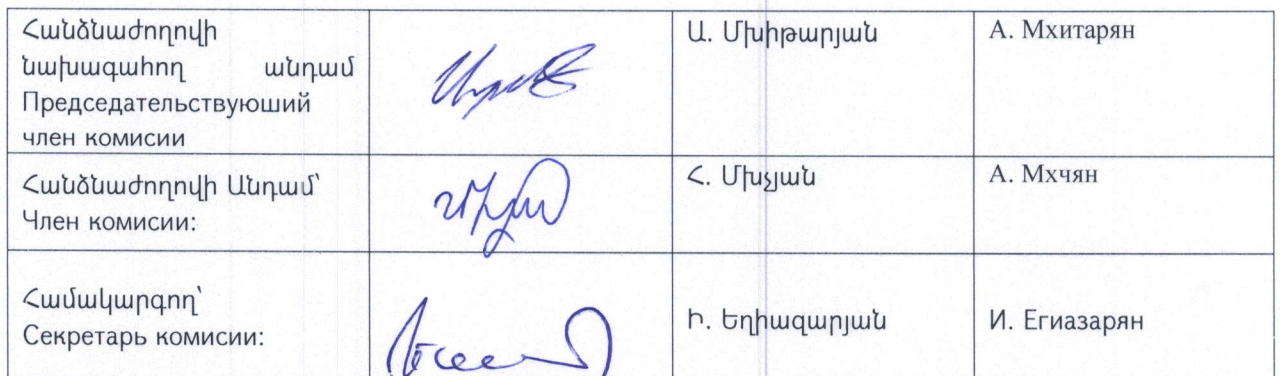 Հանձնաժողովի
նախագահող անդամ
Председательствуюший
член комисии
Ա. Մխիթարյան
А. Мхитарян
Հանձնաժողովի Անդամ՝
Член комисии:
Հ. Մխչյան
А. Мхчян
Համակարգող՝
Секретарь комисии:
Ի. Եղիազարյան
И. Егиазарян